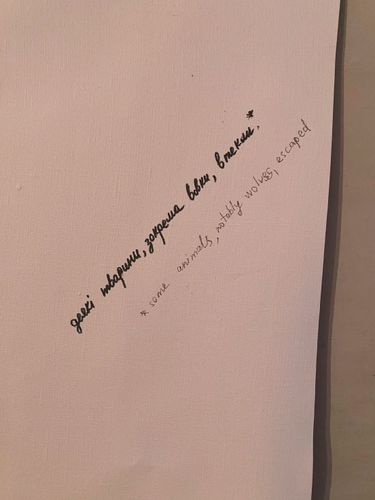 деякі тварини, зокрема вовки, втекли.*
* some animals, notably wolves, escaped